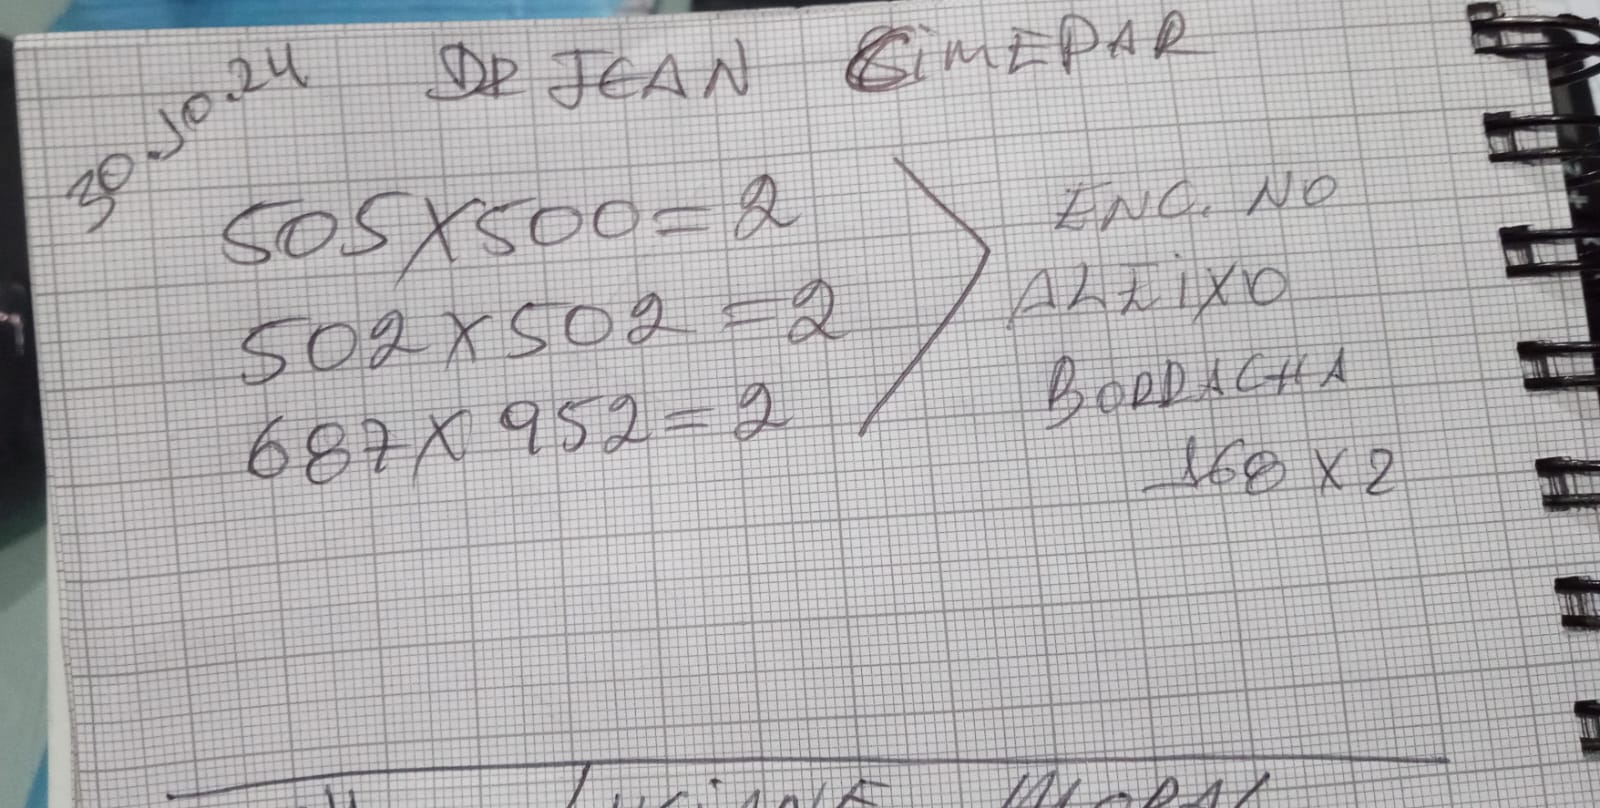 30.10.24
DR JEAN CIMEPAR
505X500=2
502X502=2
687X952=2
ENC. NO
ALEIXO
BORRACHA
168 X 2